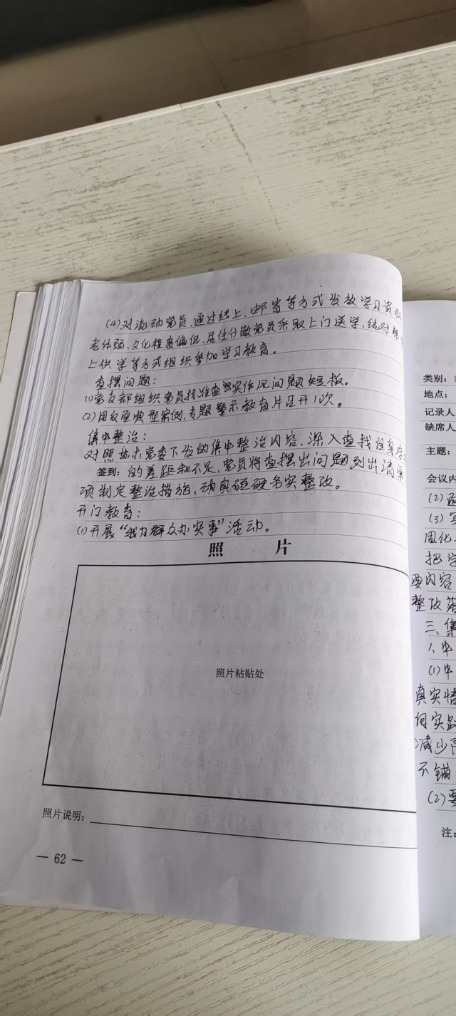 (4)对流动党员,通过线上、邮寄等方式发放学习资
老体弱、文化程度偏低、居住分散党员采取上门送学、结对帮
上供学等方式组织参加学习教育。
查摆问题:
(1)党支部组织党员找准查照实作风问题短板。
(2)用反面典型案例,专题警示教育片召开1次。
集中整治:
对照 党委下发的集中整治内容,深入查找自身存
签到: 的差距和不足,党员将查摆出问题列出清单
项制定整治措施,动真碰硬务实整改。
开门教育:
(1)开展“我为群众办实事”活动。
照 片
照片粘贴处
照片说明:
— 62 —
类别:
地点:
记录人
缺席人
主题:
会议内
(2)
(3)
固化
把学
要内容
整改落
三、集
(1)
真实情
减少
不错
(2)要
注: